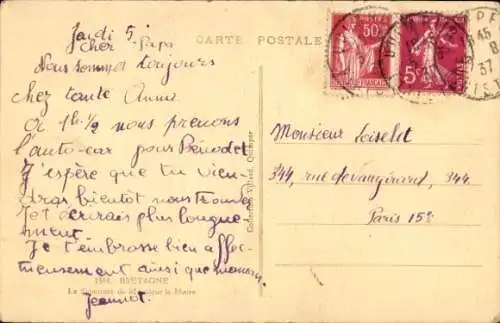 Jeudi 5
Cher Papa
Nous sommes toujours
chez tante Anna
A 1h 1/2 nous prenons
l'auto-car pour Bénodet
J'espère que tu vien-
dras bientôt nous trouver
Je t'écrirais plus longue-
ment
Je t'embrasse bien affec-
tueusement ainsi que maman.
Jeannot.
1508. BRETAGNE
de Monsieur le Maire
CARTE POSTALE
Villard, Quimper
POSTES
50c
5c
8
37
Monsieur Loiselet
344, rue de Vaugirard, 344
Paris 15e